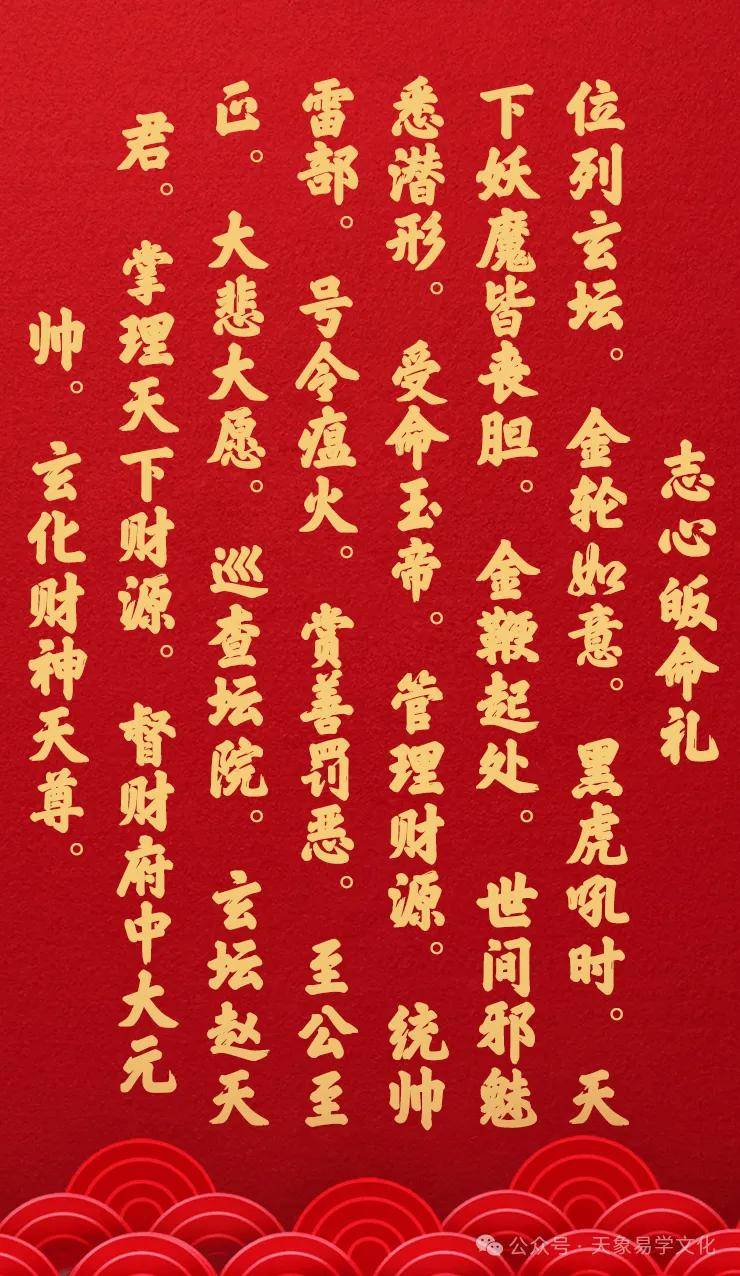 志心皈命礼
位列玄坛。金轮如意。黑虎吼时。天
下妖魔皆丧胆。金鞭起处。世间邪魅
悉潜形。受命玉帝。管理财源。统帅
雷部。号令瘟火。赏善罚恶。至公至
正。大悲大愿。巡查坛院。玄坛赵天
君。掌理天下财源。督财府中大元
帅。玄化财神天尊。
公众号·天象易学文化